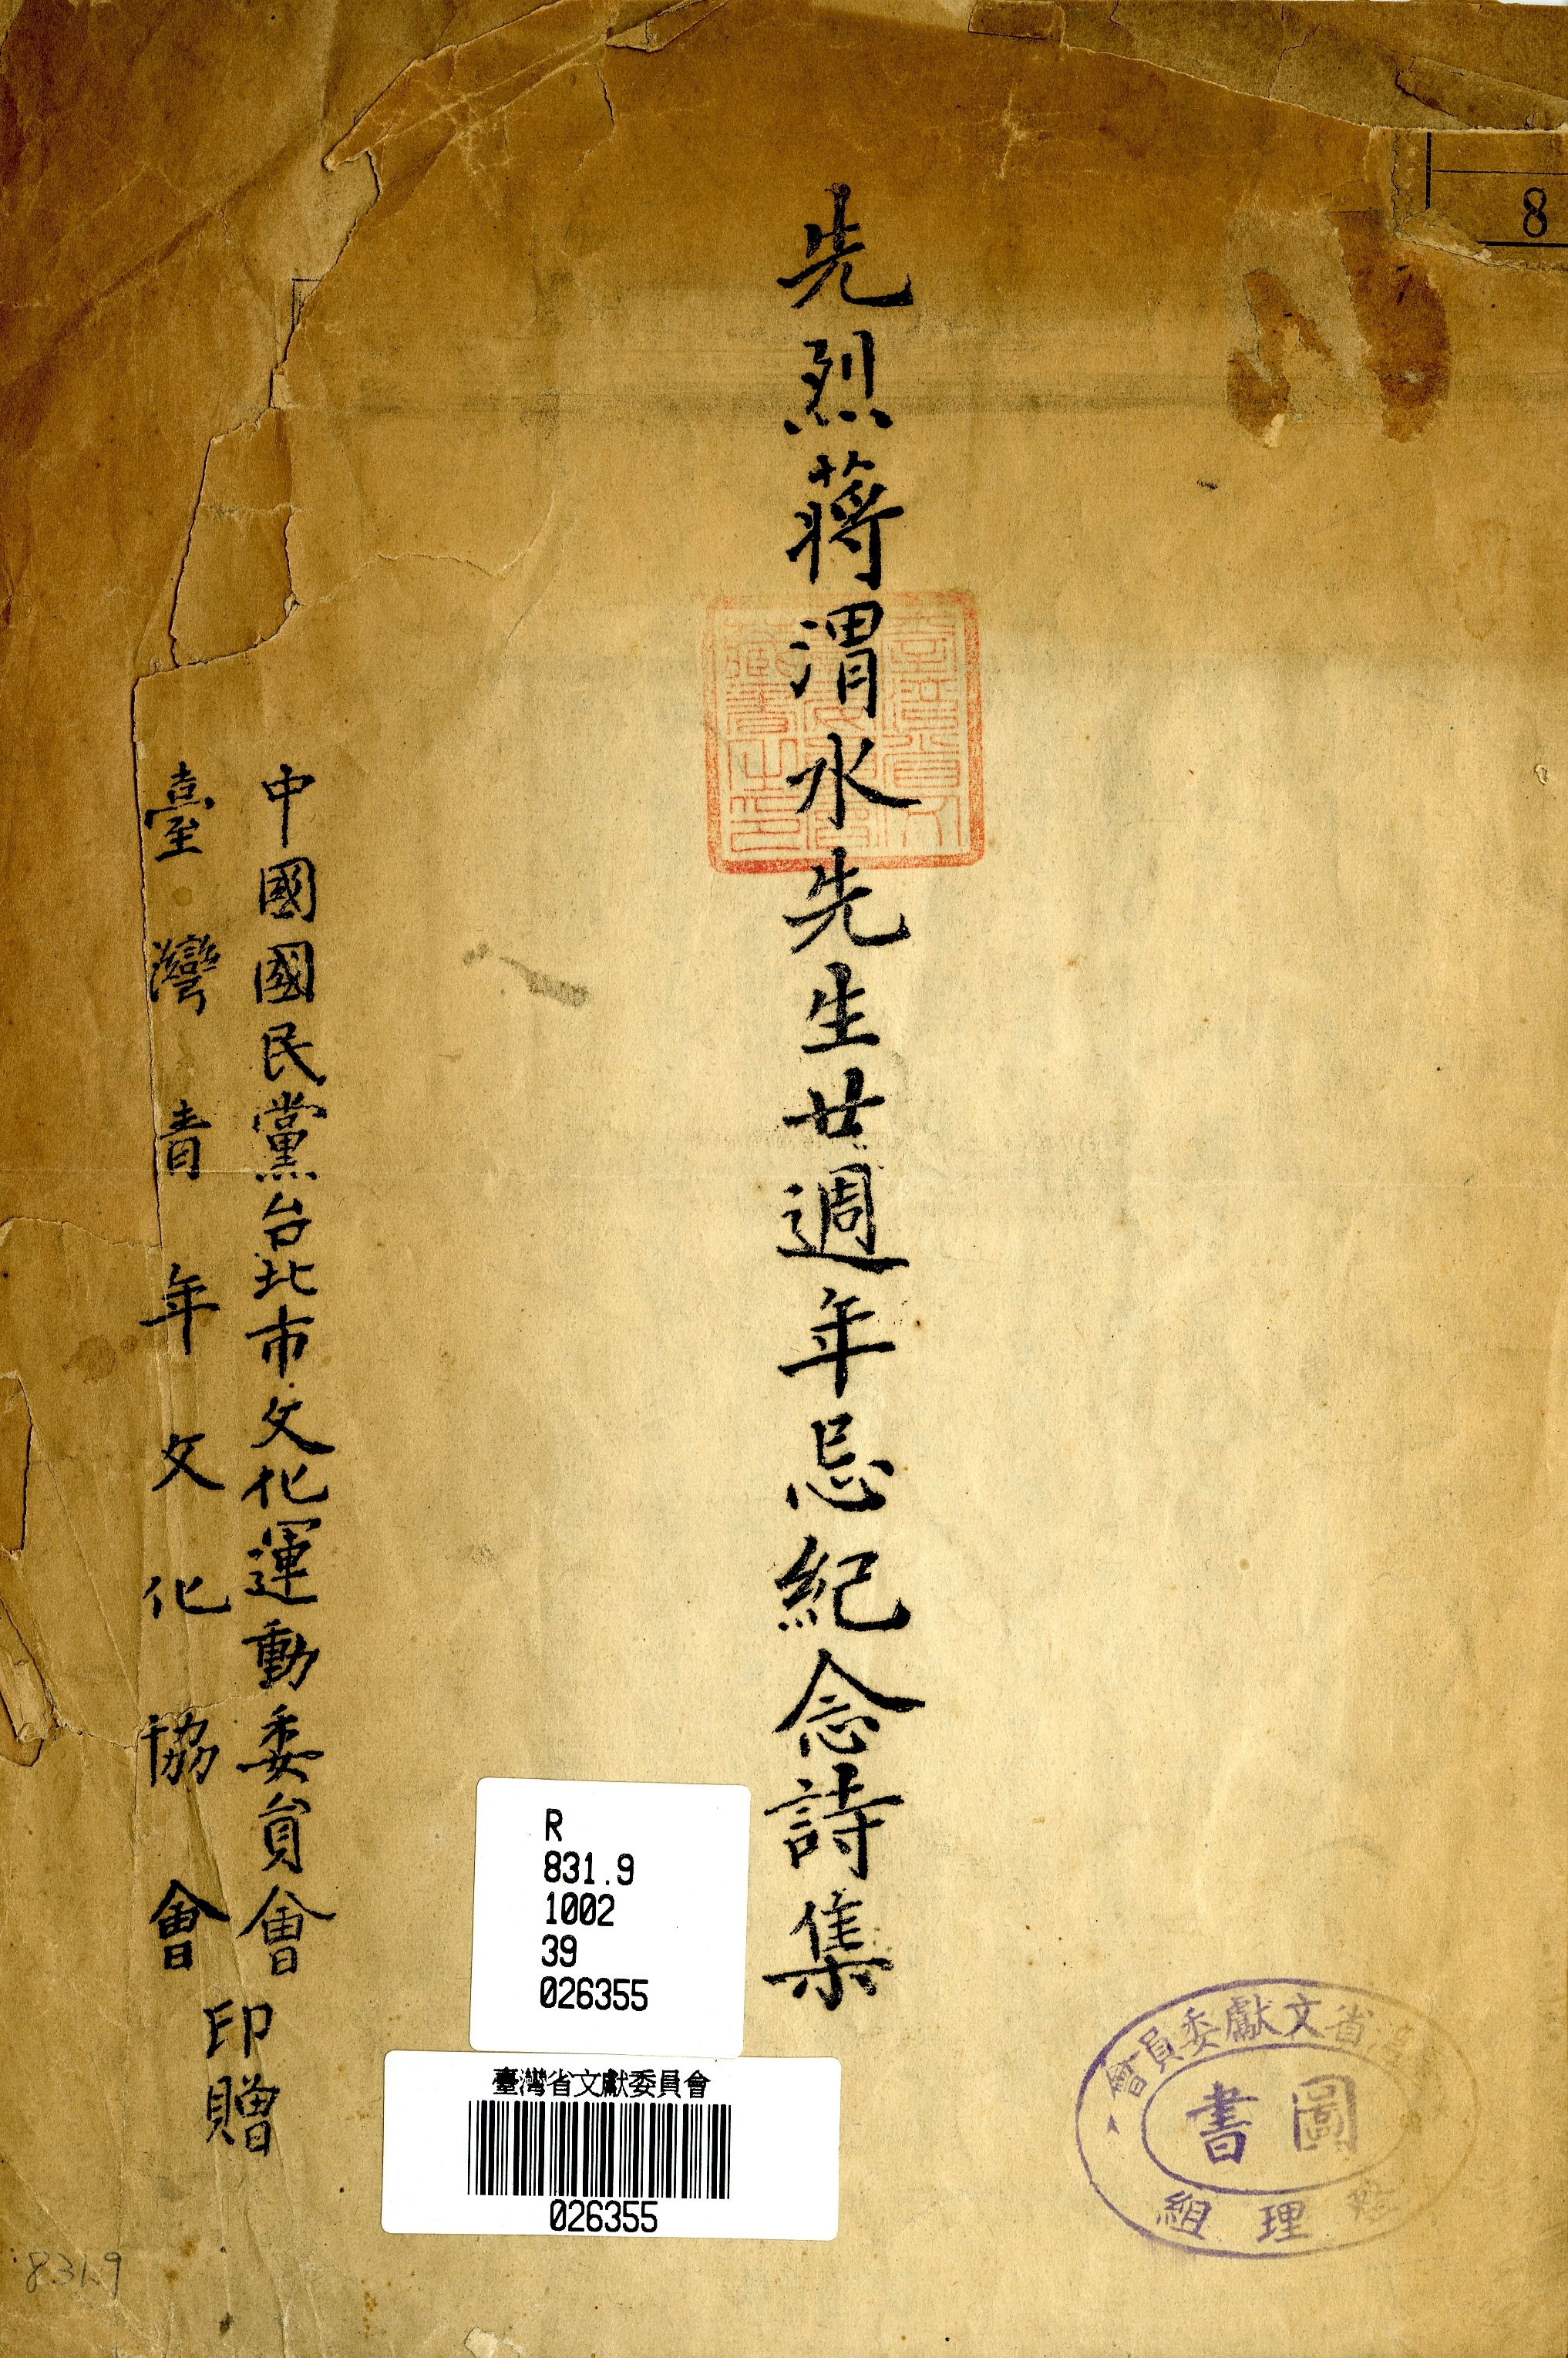 8
先烈蔣渭水先生廿週年忌紀念詩集
中國國民黨台北市文化運動委員會
臺灣青年文化協會
印贈
R
831.9
1002
39
026355
臺灣省文獻委員會
026355
省文獻委員會
圖書
理組
831.9